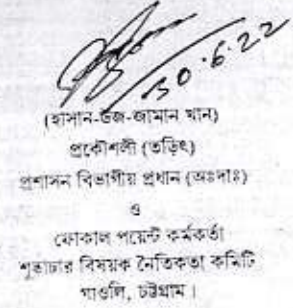 ৩০.৬.২২
(হাসান-উজ-জামান খান)
প্রকৌশলী (তড়িৎ)
প্রশাসন বিভাগীয় প্রধান (অঃদাঃ)
ও
ফোকাল পয়েন্ট কর্মকর্তা
শুদ্ধাচার বিষয়ক নৈতিকতা কমিটি
গাওলি, চট্টগ্রাম।